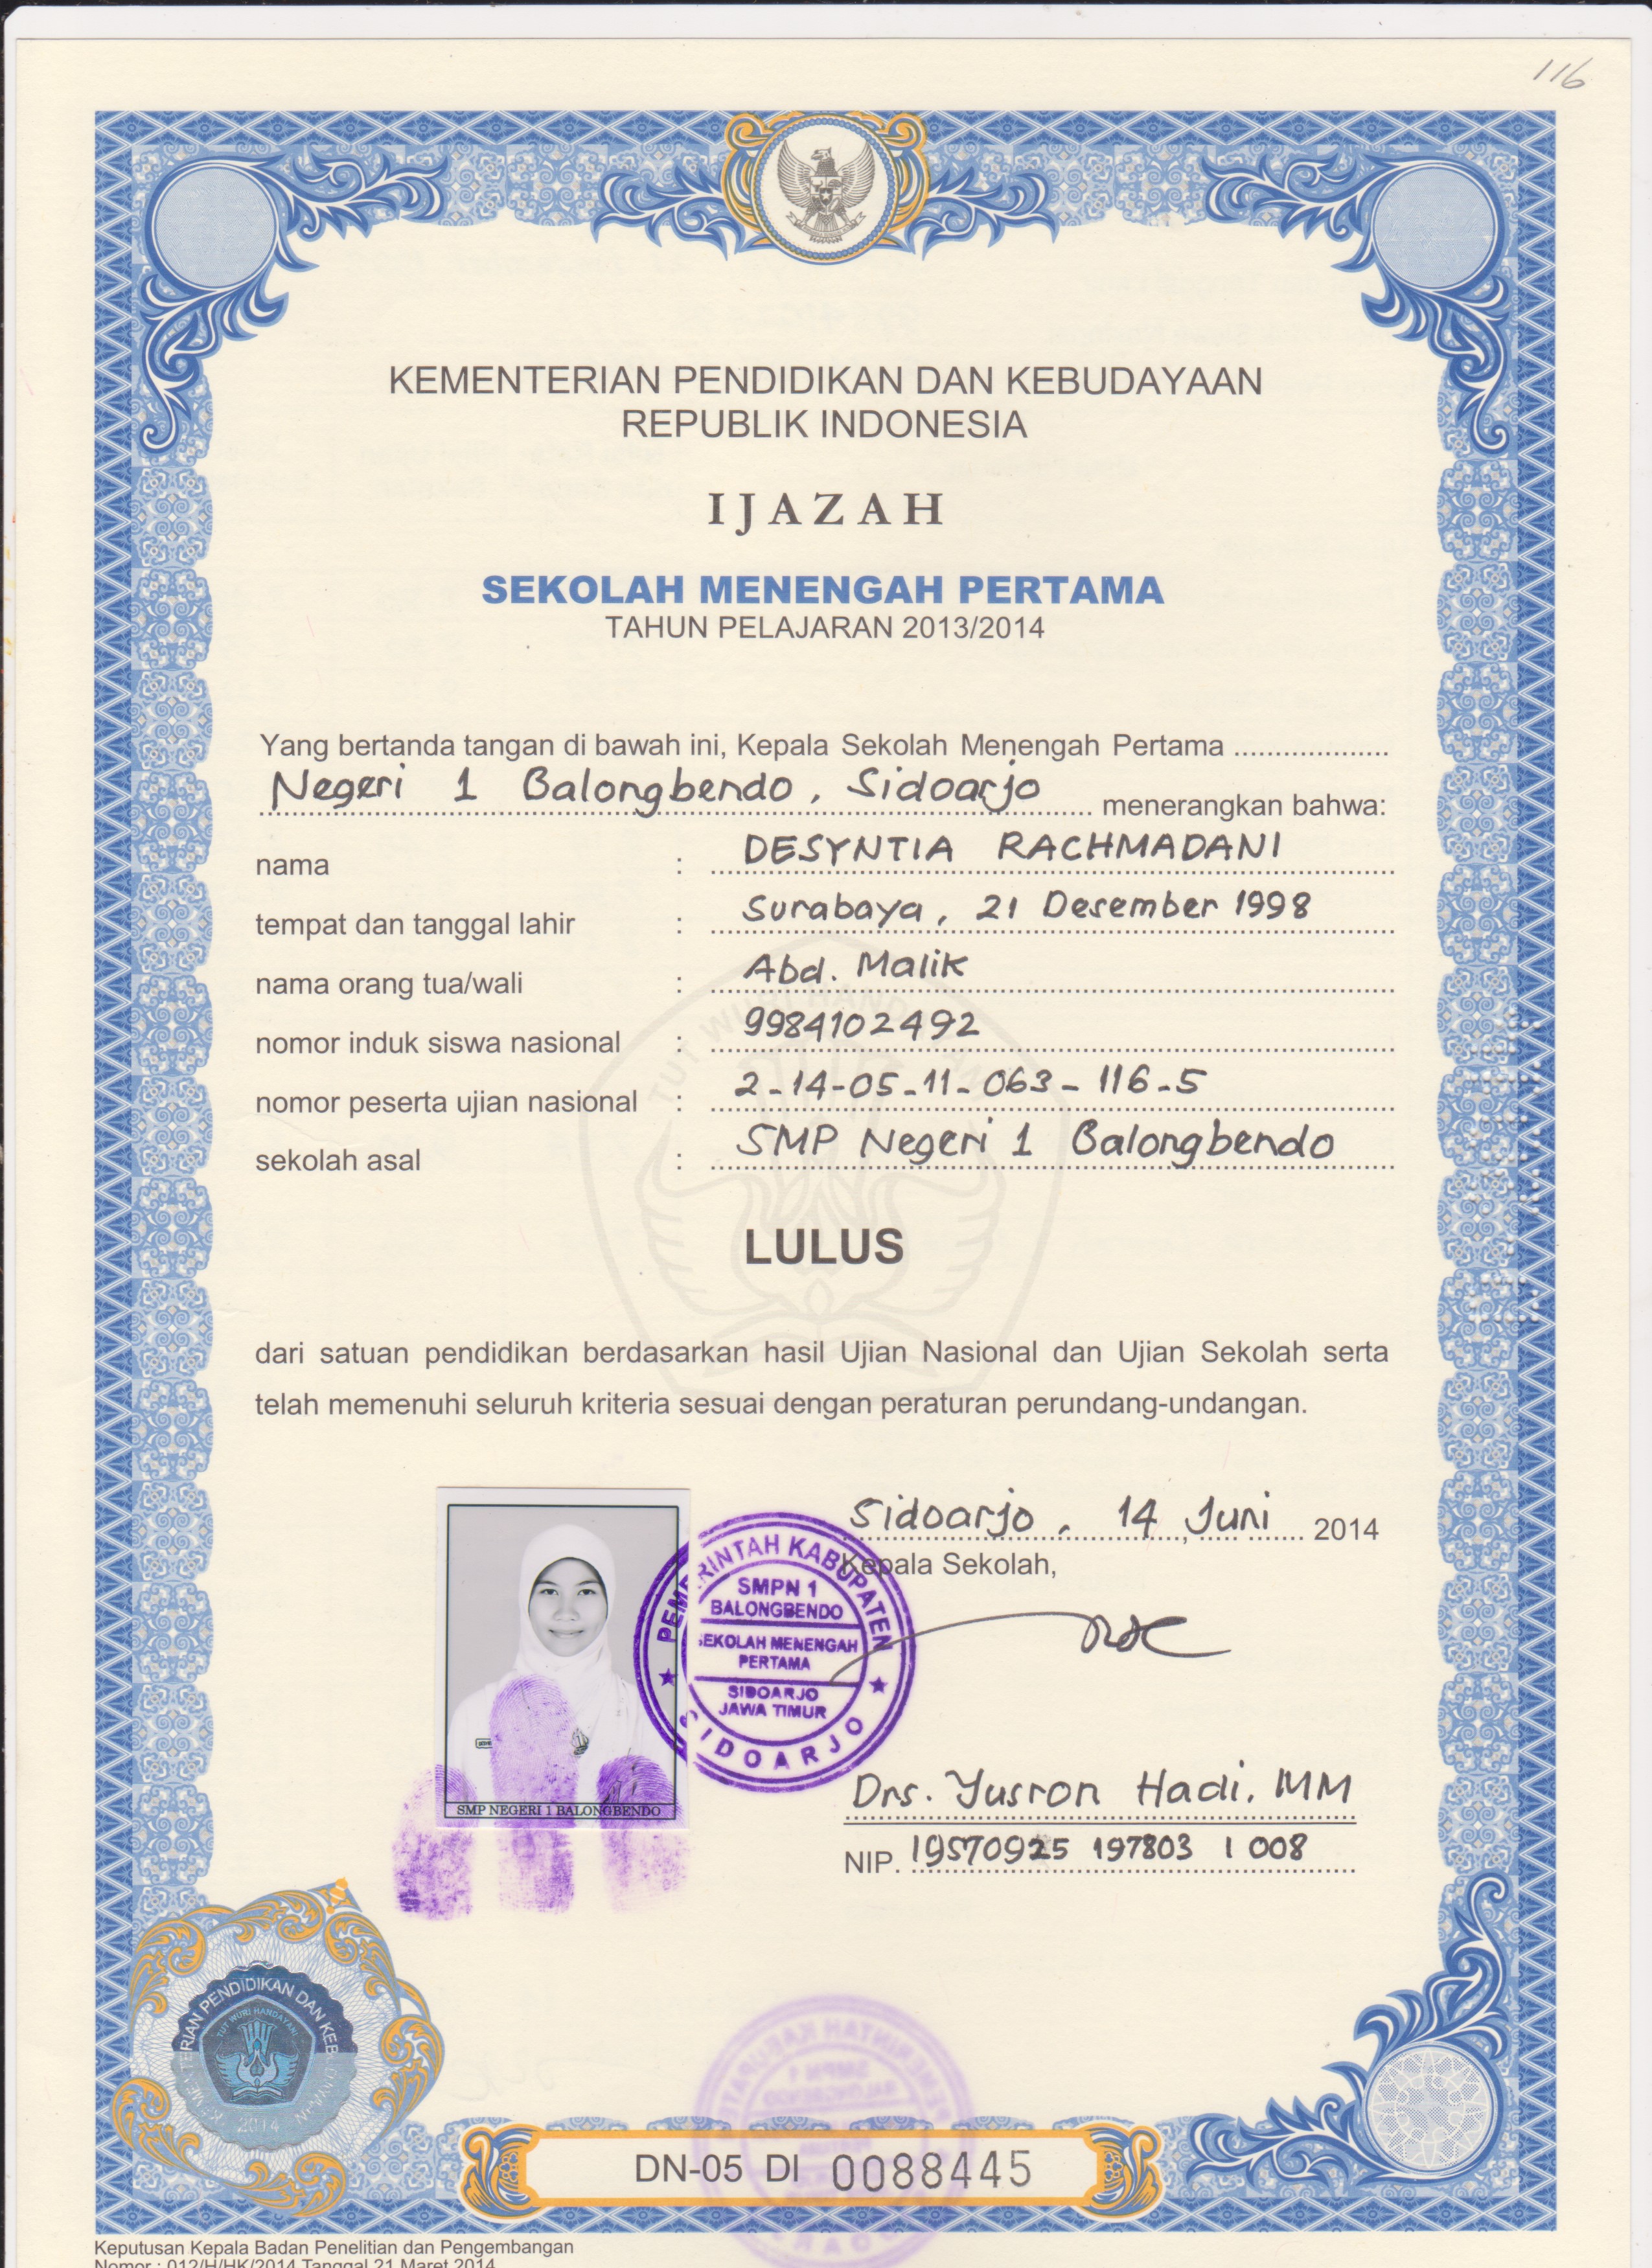 116
KEMENTERIAN PENDIDIKAN DAN KEBUDAYAAN
REPUBLIK INDONESIA
IJAZAH
SEKOLAH MENENGAH PERTAMA
TAHUN PELAJARAN 2013/2014
Yang bertanda tangan di bawah ini, Kepala Sekolah Menengah Pertama ...................
Negeri 1 Balongbendo, Sidoarjo menerangkan bahwa:
nama : DESYNTIA RACHMADANI
tempat dan tanggal lahir : Surabaya, 21 Desember 1998
nama orang tua/wali : Abd. Malik
nomor induk siswa nasional : 9984102492
nomor peserta ujian nasional : 2-14-05-11-063-116-5
sekolah asal : SMP Negeri 1 Balongbendo
TUT WURI HANDAYANI
LULUS
dari satuan pendidikan berdasarkan hasil Ujian Nasional dan Ujian Sekolah serta
telah memenuhi seluruh kriteria sesuai dengan peraturan perundang-undangan.
Sidoarjo, 14 Juni 2014
Kepala Sekolah,
PEMERINTAH KABUPATEN
SMPN 1
BALONGBENDO
SEKOLAH MENENGAH
PERTAMA
SIDOARJO
JAWA TIMUR
SIDOARJO
SMP NEGERI 1 BALONGBENDO
Drs. Yusron Hadi, MM
NIP. 19570925 197803 1 008
TUT WURI HANDAYANI
2014
DN-05 DI 0088445
Keputusan Kepala Badan Penelitian dan Pengembangan
Nomor : 012/H/HK/2014 Tanggal 21 Maret 2014